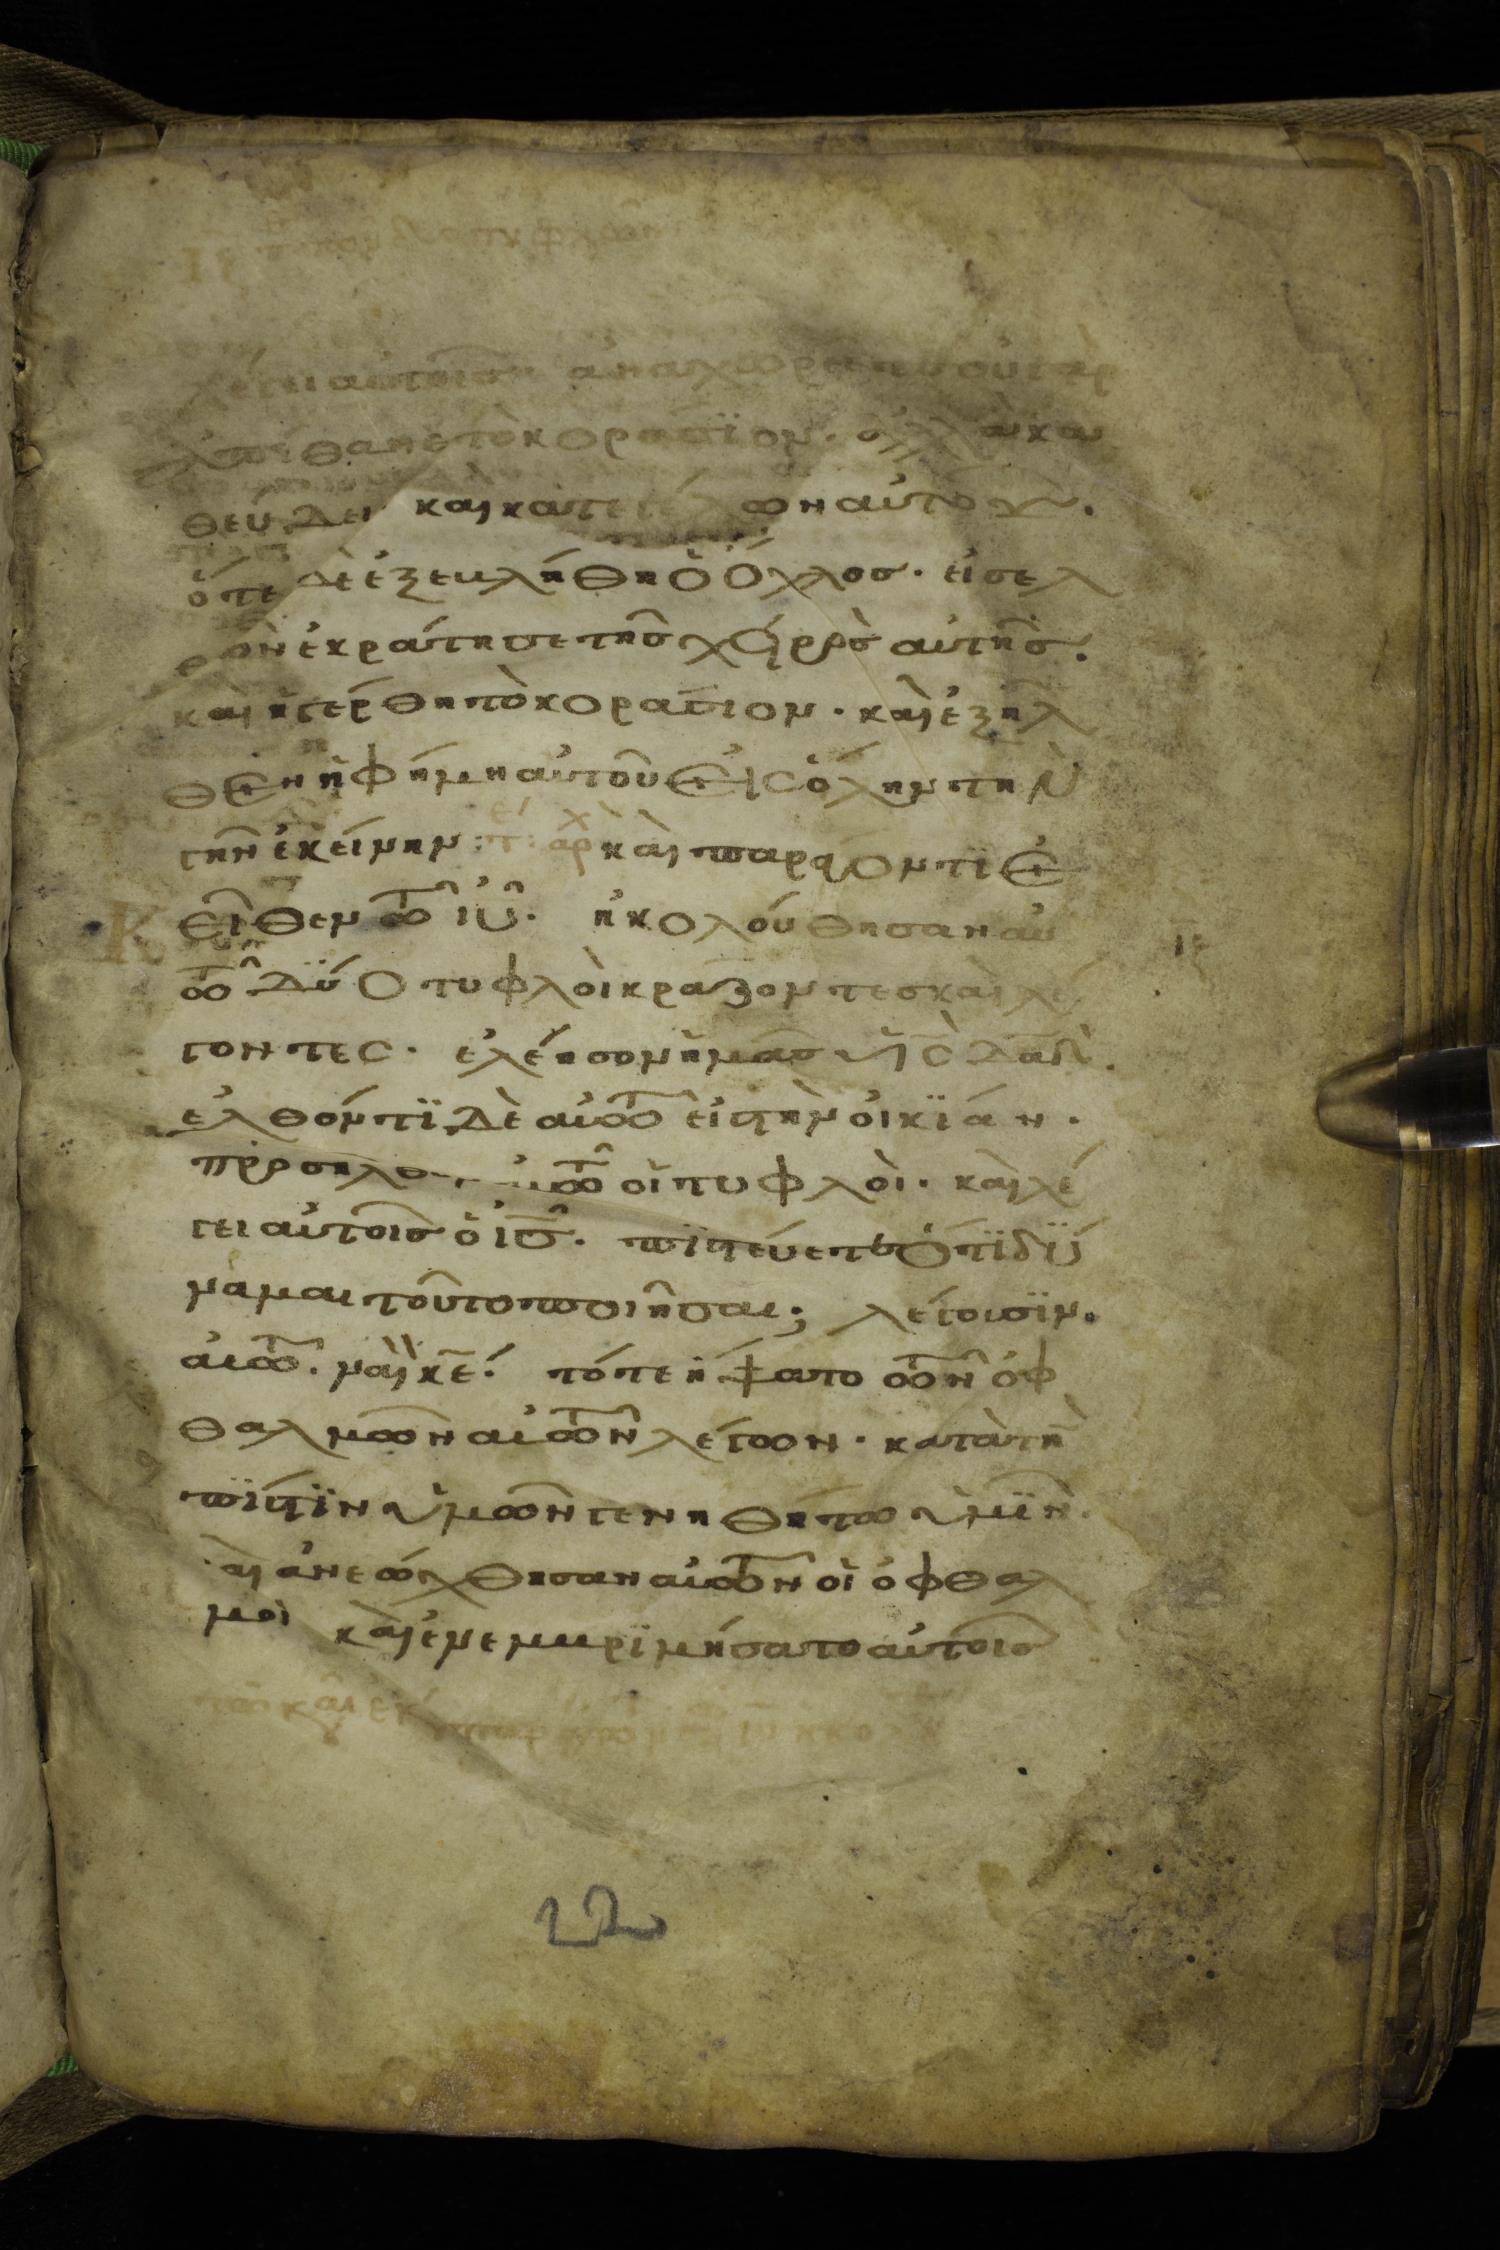 λέγει αὐτοῖς ἀναχωρεῖτε οὐ γὰρ
ἀπέθανε τὸ κοράσϊον. ἀλλὰ κα
θεύδει καὶ κατεγέλων αὐτοῦ.
ὅτε δὲ ἐξεβλήθη ὁ ὄχλος. εἰσελ
θὼν ἐκράτησε τῆς χειρὸς αὐτῆς.
καὶ ἠγέρθη τὸ κοράσιον. καὶ ἐξῆλ
θεν ἡ φήμη αὐτοῦ εἰς ὅλην τὴν
γῆν ἐκείνην: τ: ἀρχ καὶ παράγοντι ἐ
κεῖθεν τῶ ιῦ. ἠκολούθησαν αὐ
τῶ δύο τυφλοὶ κράζοντες καὶ λέ
γοντες. ἐλέησον ἡμᾶς υἱὸς δαδ.
ἐλθόντϊ δὲ αὐτῶ εἰς τὴν οἰκϊάν.
προσῆλθον αὐτῶ οἱ τυφλοὶ. καὶ λέ
γει αὐτοῖς ὁ ις. πϊστεύετε ὅτϊ δύ
ναμαι τοῦτο ποιῆσαι; λέγουσϊν.
αὐτῶ. ναὶ κε. τότε ἥψατο τῶν ὀφ
θαλμῶν αὐτῶν λέγων. κατὰ τὴν
πϊστϊν ὑμῶν γενηθήτω ὑμῖν.
καὶ ἀνεώχθησαν αὐτῶν οἱ ὀφθαλ
μοὶ καὶ ἐνεμβρϊμήσατο αὐτοῖς
22